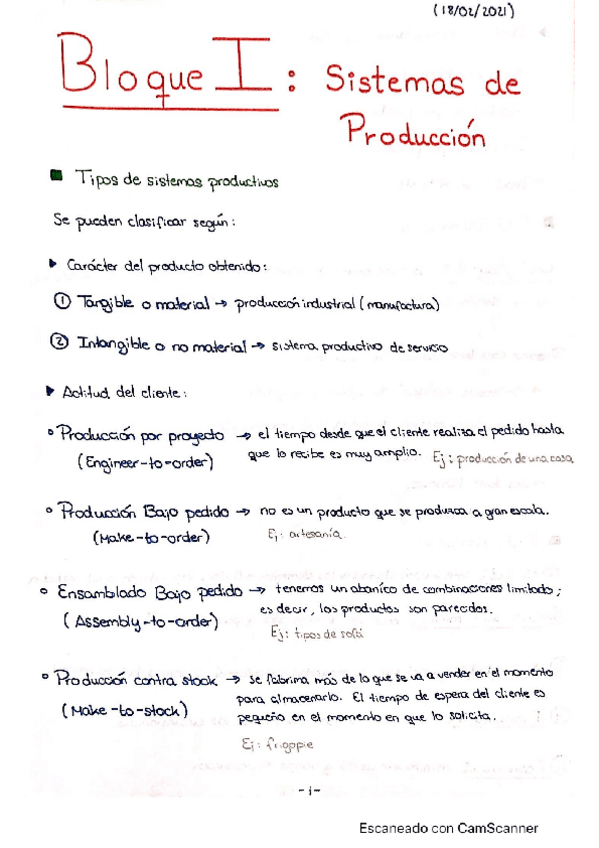 (18/02/2021)
Bloque I: Sistemas de
Producción
Tipos de sistemas productivos
Se pueden clasificar según:
Carácter del producto obtenido:
① Tangible o material → producción industrial (manufactura)
② Intangible o no material → sistema productivo de servicio
Actitud del cliente:
Producción por proyecto → el tiempo desde que el cliente realiza el pedido hasta
(Engineer-to-order) que lo recibe es muy amplio. Ej: producción de una casa
Producción Bajo pedido → no es un producto que se produzca a gran escala.
(Make-to-order) Ej: artesanía.
Ensamblado Bajo pedido → tenemos un abanico de combinaciones limitado;
(Assembly-to-order) es decir, los productos son parecidos.
Ej: tipos de sofá
Producción contra stock → se fabrima más de lo que se va a vender en el momento
(Make-to-stock) para almacenarlo. El tiempo de espera del cliente es
pequeño en el momento en que lo solicita.
Ej:
-1-
Escaneado con CamScanner